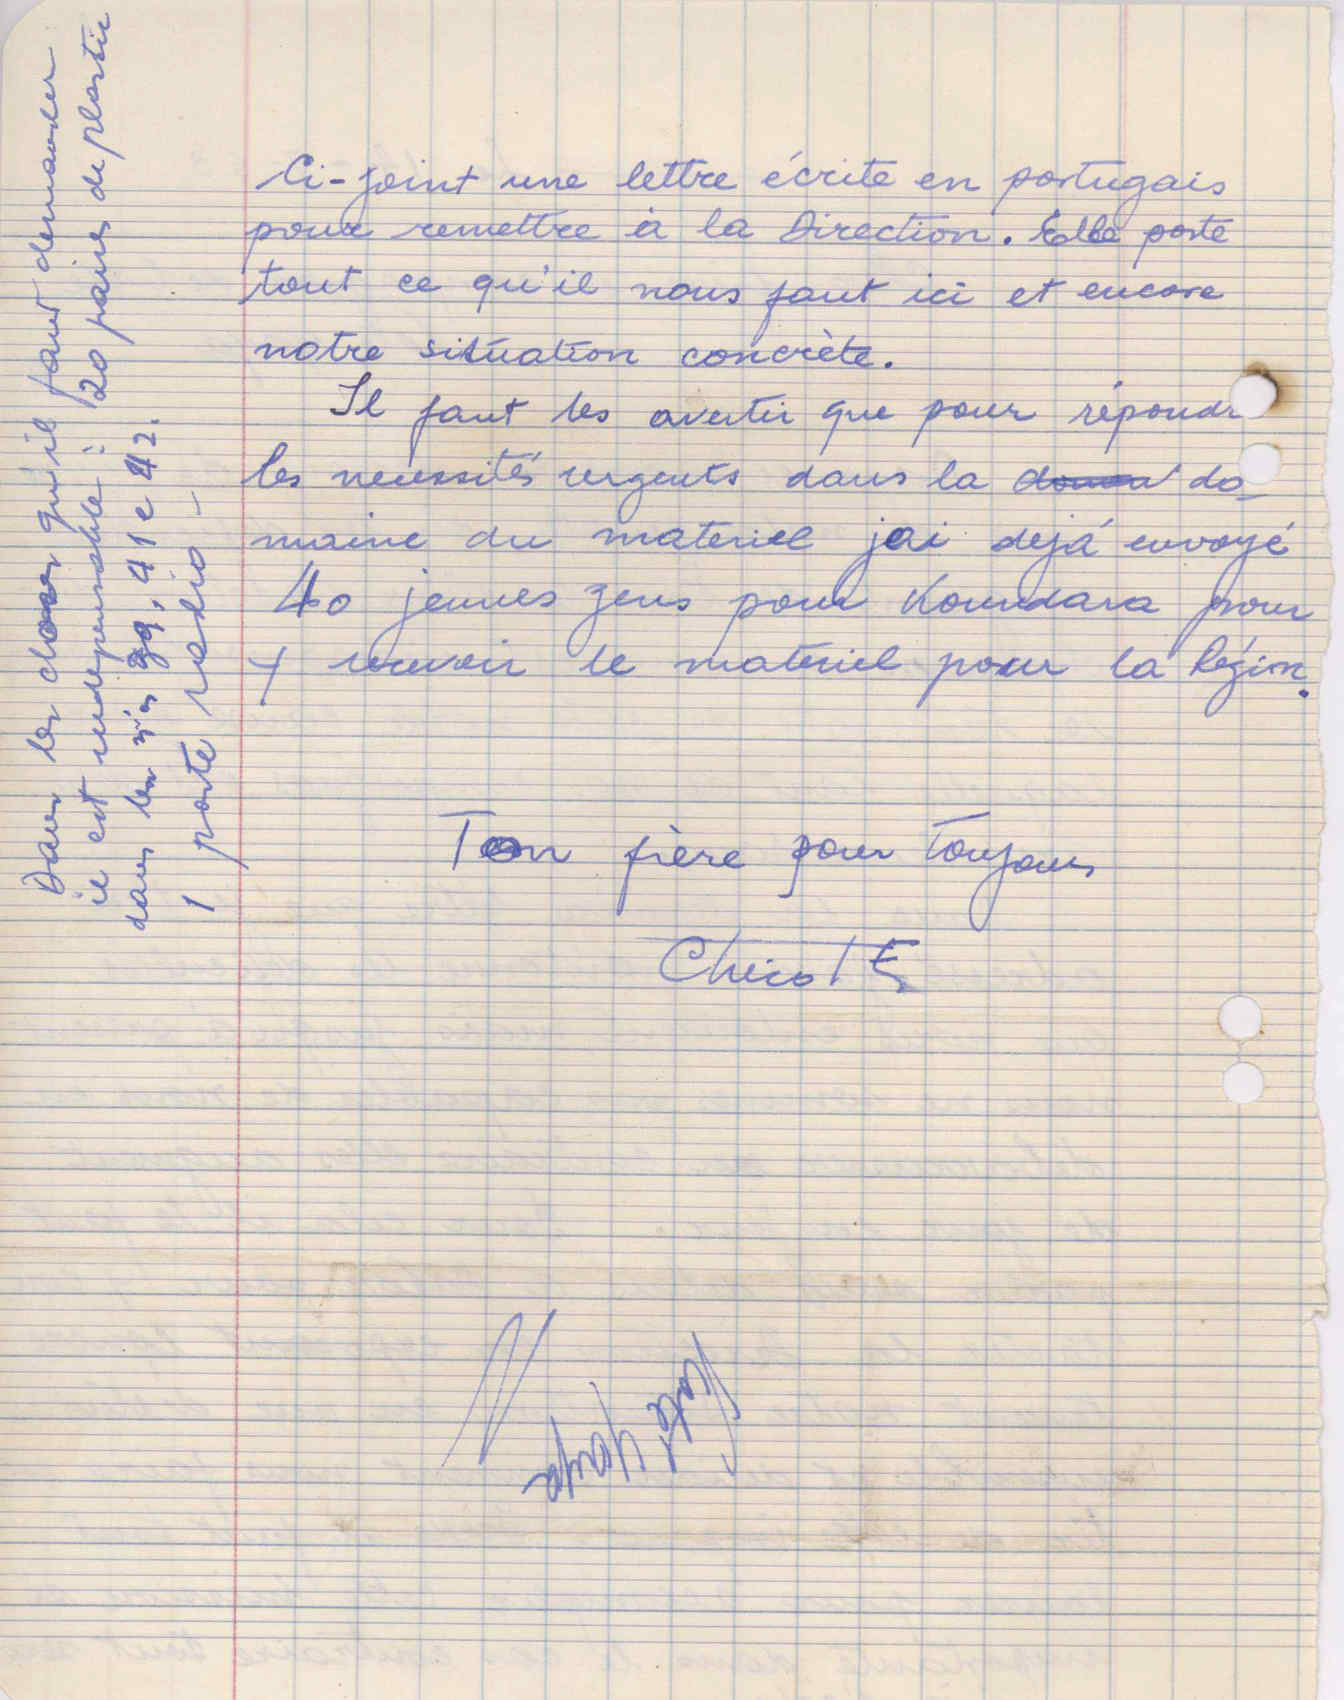 Ci-joint une lettre écrite en portugais
pour remettre à la Direction. Elle porte
tout ce qu'il nous faut ici et encore
notre situation concrète.
Il faut les avertir que pour répondr
les necessités urgents dans la do-
maine du materiel jai dejá envoyé
40 jeunes gens pour Koundara pour
y recevoir le matériel pour la Région.
Ton frère pour Toujours
Chico Té
Dans les choses qu'il faut demander
il est indispensable : 20 paires de plastic
dans les nºs 39, 41 e 42.
1 poste radio -